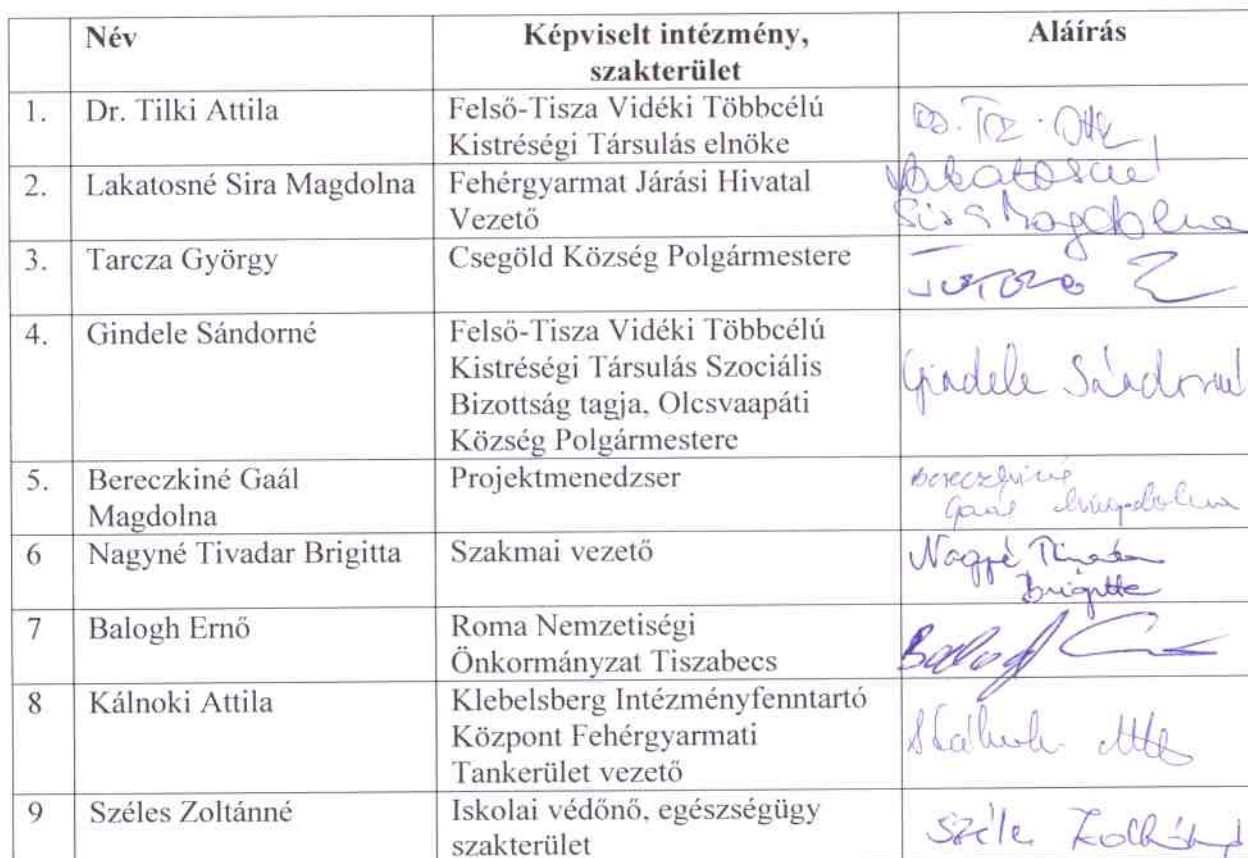 Név Képviselt intézmény, Aláírás
szakterület
1. Dr. Tilki Attila Felső-Tisza Vidéki Többcélú
Kistréségi Társulás elnöke
2. Lakatosné Sira Magdolna Fehérgyarmat Járási Hivatal Lakatosné
Vezető Sira Magdolna
3. Tarcza György Csegöld Község Polgármestere
4. Gindele Sándorné Felső-Tisza Vidéki Többcélú
Kistréségi Társulás Szociális Gindele Sándorné
Bizottság tagja, Olcsvaapáti
Község Polgármestere
5. Bereczkiné Gaál Projektmenedzser Bereczkiné
Magdolna Gaál Magdolna
6 Nagyné Tivadar Brigitta Szakmai vezető Nagyné Tivadar
Brigitta
7 Balogh Ernő Roma Nemzetiségi
Önkormányzat Tiszabecs Balogh
8 Kálnoki Attila Klebelsberg Intézményfenntartó
Központ Fehérgyarmati
Tankerület vezető
9 Széles Zoltánné Iskolai védőnő, egészségügy
szakterület Széles Zoltánné